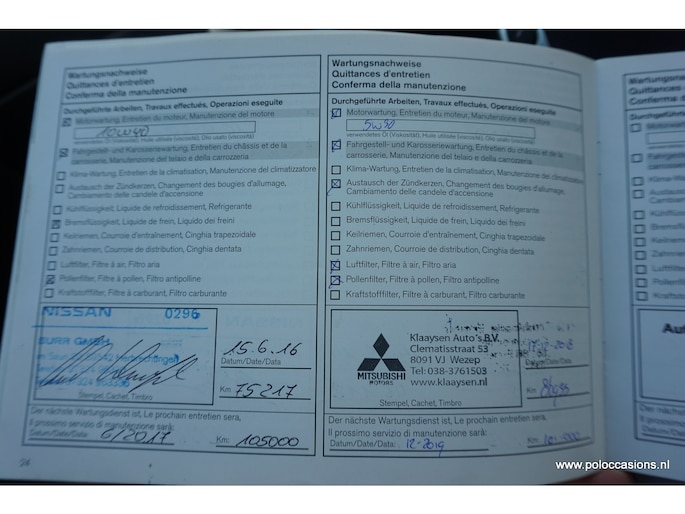 Wartungsnachweise
Quittances d'entretien
Conferma della manutenzione
Durchgeführte Arbeiten, Travaux effectués, Operazioni eseguite
Motorwartung, Entretien du moteur, Manutenzione del motore
10W40
verwendetes Öl (Viskosität), Huile utilisée (viscosité), Olio usato (viscosità)
Fahrgestell- und Karosseriewartung, Entretien du châssis et de la
carrosserie, Manutenzione del telaio e della carrozzeria
Klima-Wartung, Entretien de la climatisation, Manutenzione del climatizzatore
Austausch der Zündkerzen, Changement des bougies d'allumage,
Cambiamento delle candele d'accensione
Kühlflüssigkeit, Liquide de refroidissement, Refrigerante
Bremsflüssigkeit, Liquide de frein, Liquido dei freini
Keilriemen, Courroie d'entraînement, Cinghia trapezoidale
Zahnriemen, Courroie de distribution, Cinghia dentata
Luftfilter, Filtre à air, Filtro aria
Pollenfilter, Filtre à pollen, Filtro antipolline
Kraftstofffilter, Filtre à carburant, Filtro carburante
NISSAN 0296
BURR GMBH
Stempel, Cachet, Timbro
15.6.16
Datum/Date/Data
Km 75217
Der nächste Wartungsdienst ist, Le prochain entretien sera,
Il prossimo servizio di manutenzione sarà:
Datum/Date/Data: 6/2017 Km: 105000
26
Wartungsnachweise
Quittances d'entretien
Conferma della manutenzione
Durchgeführte Arbeiten, Travaux effectués, Operazioni eseguite
Motorwartung, Entretien du moteur, Manutenzione del motore
5W30
verwendetes Öl (Viskosität), Huile utilisée (viscosité), Olio usato (viscosità)
Fahrgestell- und Karosseriewartung, Entretien du châssis et de la
carrosserie, Manutenzione del telaio e della carrozzeria
Klima-Wartung, Entretien de la climatisation, Manutenzione del climatizzatore
Austausch der Zündkerzen, Changement des bougies d'allumage,
Cambiamento delle candele d'accensione
Kühlflüssigkeit, Liquide de refroidissement, Refrigerante
Bremsflüssigkeit, Liquide de frein, Liquido dei freini
Keilriemen, Courroie d'entraînement, Cinghia trapezoidale
Zahnriemen, Courroie de distribution, Cinghia dentata
Luftfilter, Filtre à air, Filtro aria
Pollenfilter, Filtre à pollen, Filtro antipolline
Kraftstofffilter, Filtre à carburant, Filtro carburante
MITSUBISHI
MOTORS
Klaaysen Auto's B.V.
Clematisstraat 53
8091 VJ Wezep
Tel: 038-3761503
www.klaaysen.nl
Stempel, Cachet, Timbro
Datum/Date/Data
Km
Der nächste Wartungsdienst ist, Le prochain entretien sera,
Il prossimo servizio di manutenzione sarà:
Datum/Date/Data: 12-2019 Km:
www.poloccasions.nl